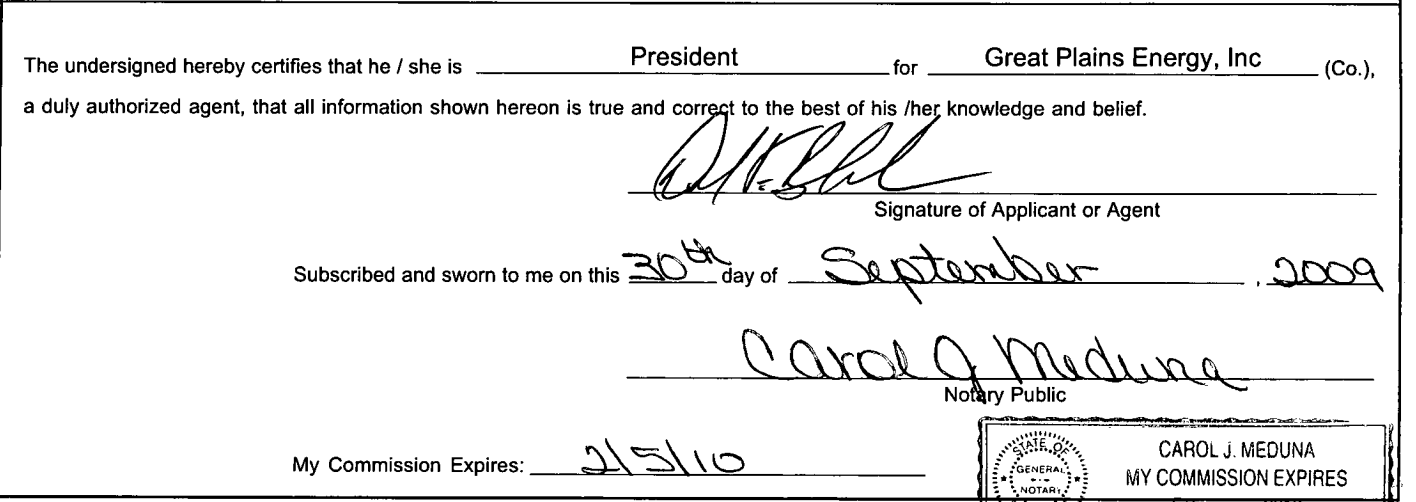 The undersigned hereby certifies that he / she is President for Great Plains Energy, Inc (Co.),
a duly authorized agent, that all information shown hereon is true and correct to the best of his /her knowledge and belief.
Signature of Applicant or Agent
Subscribed and sworn to me on this 30th day of September , 2009
Carol J Meduna
Notary Public
My Commission Expires: 2/5/10
STATE OF
GENERAL
NOTARY
CAROL J. MEDUNA
MY COMMISSION EXPIRES